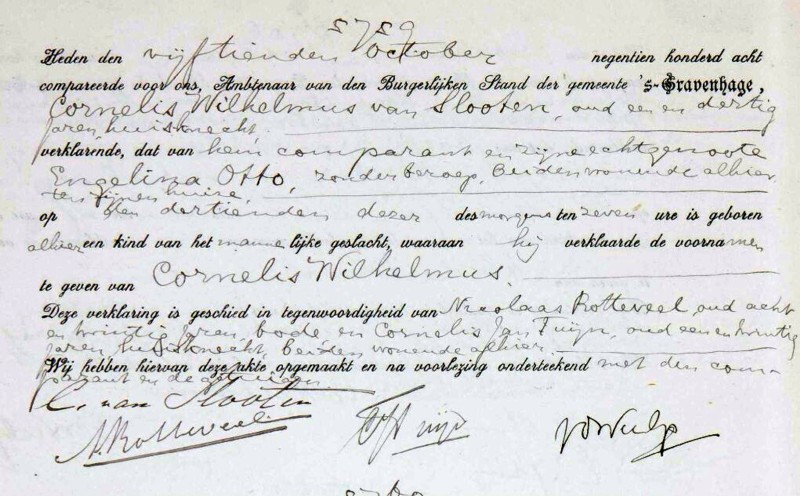 5759
Heden den vijftienden october negentien honderd acht
compareerde voor ons, Ambtenaar van den Burgerlijken Stand der gemeente 's-Gravenhage,
Cornelis Wilhelmus van Slooten, oud een en dertig
jaren, huisknecht,
verklarende, dat van hem comparant en zijne echtgenoote
Engelina Otto, zonder beroep, beiden wonende alhier,
ten zijnen huize,
op den dertienden dezer des morgens ten zeven ure is geboren
alhier een kind van het mannelijke geslacht, waaraan hij verklaarde de voornamen
te geven van Cornelis Wilhelmus.
Deze verklaring is geschied in tegenwoordigheid van Nicolaas Rotteveel, oud acht
en twintig jaren, bode, en Cornelis Jan Tuijn, oud een en twintig
jaren, huisknecht, beiden wonende alhier.
Wij hebben hiervan deze akte opgemaakt en na voorlezing onderteekend met den com-
parant en de getuigen.
C. van Slooten
N. Rotteveel Tuijn